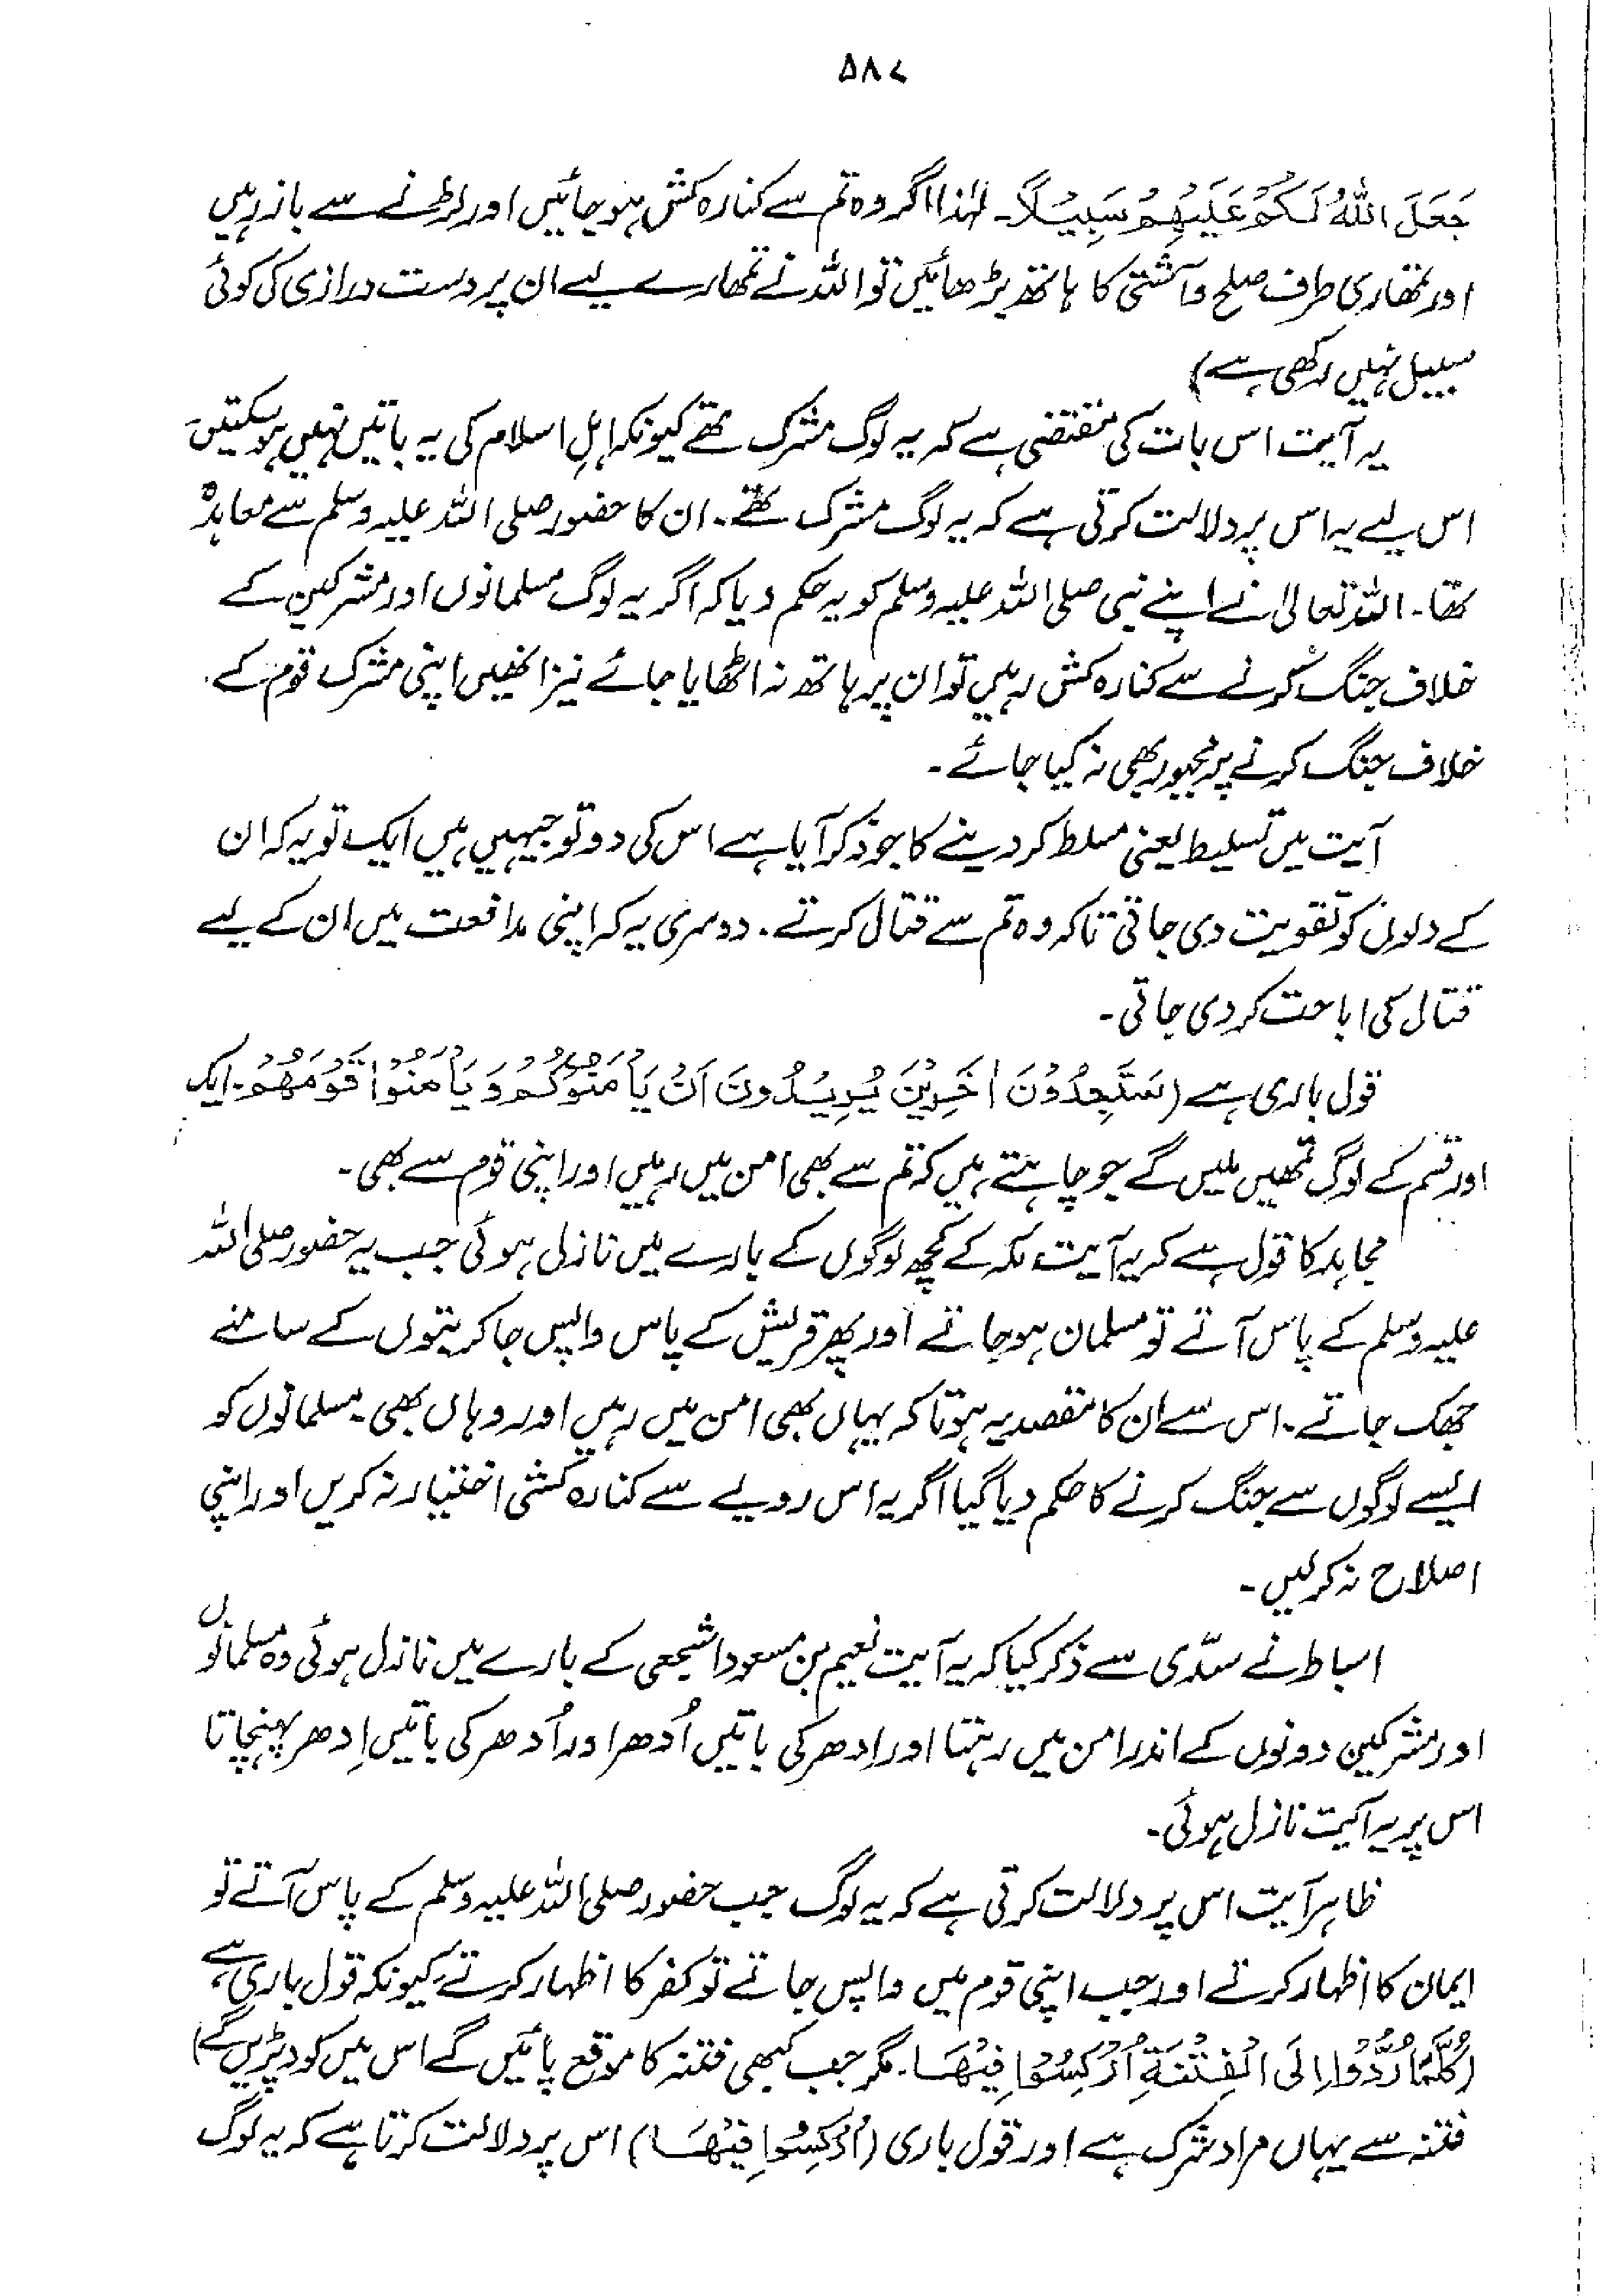 ۵۸۷
جَعَلَ اللّٰهُ لَكُمْ عَلَيْهِمْ سَبِيْلًا۔ لہٰذا اگر وہ تم سے کنارہ کش ہو جائیں اور لڑنے سے باز رہیں
اور تمھاری طرف صلح و آشتی کا ہاتھ بڑھائیں تو اللہ نے تمھارے لیے ان پر دست درازی کی کوئی
سبیل نہیں رکھی ہے)
یہ آیت اس بات کی مقتضی ہے کہ یہ لوگ مشرک تھے کیونکہ اہلِ اسلام کی یہ باتیں نہیں ہو سکتیں
اس لیے یہ اس پر دلالت کرتی ہے کہ یہ لوگ مشرک تھے۔ ان کا حضور صلی اللہ علیہ وسلم سے معاہدہ
تھا۔ اللہ تعالیٰ نے اپنے نبی صلی اللہ علیہ وسلم کو یہ حکم دیا کہ اگر یہ لوگ مسلمانوں اور مشرکین کے
خلاف جنگ کرنے سے کنارہ کش رہیں تو ان پر ہاتھ نہ اٹھایا جائے نیز انھیں اپنی مشرک قوم کے
خلاف جنگ کرنے پر مجبور بھی نہ کیا جائے۔
آیت میں تسلیط یعنی مسلط کر دینے کا جو ذکر آیا ہے اس کی دو توجیہیں ہیں ایک تو یہ کہ ان
کے دلوں کو تقویت دی جاتی تاکہ وہ تم سے قتال کرتے۔ دوسری یہ کہ اپنی مدافعت میں ان کے لیے
قتال کی اباحت کر دی جاتی۔
قول باری ہے (سَتَجِدُوْنَ اٰخَرِيْنَ يُرِيْدُوْنَ اَنْ يَّاْمَنُوْكُمْ وَ يَاْمَنُوْا قَوْمَهُمْ۔ ایک
اور قسم کے لوگ تمھیں ملیں گے جو چاہتے ہیں کہ تم سے بھی امن میں رہیں اور اپنی قوم سے بھی۔
مجاہد کا قول ہے کہ یہ آیت مکہ کے کچھ لوگوں کے بارے میں نازل ہوئی جب یہ حضور صلی اللہ
علیہ وسلم کے پاس آتے تو مسلمان ہو جاتے اور پھر قریش کے پاس واپس جا کر بتوں کے سامنے
جھک جاتے۔ اس سے ان کا مقصد یہ ہوتا کہ یہاں بھی امن میں رہیں اور وہاں بھی۔ مسلمانوں کو
ایسے لوگوں سے جنگ کرنے کا حکم دیا گیا اگر یہ اس رویے سے کنارہ کشی اختیار نہ کریں اور اپنی
اصلاح نہ کر لیں۔
اسباط نے سدّی سے ذکر کیا کہ یہ آیت نعیم بن مسعود اشجعی کے بارے میں نازل ہوئی وہ مسلمانوں
اور مشرکین دونوں کے اندر امن میں رہتا اور ادھر کی باتیں اُدھر اور اُدھر کی باتیں اِدھر پہنچاتا
اس پر یہ آیت نازل ہوئی۔
ظاہر آیت اس پر دلالت کرتی ہے کہ یہ لوگ جب حضور صلی اللہ علیہ وسلم کے پاس آتے تو
ایمان کا اظہار کرتے اور جب اپنی قوم میں واپس جاتے تو کفر کا اظہار کرتے کیونکہ قول باری ہے،
(كُلَّمَا رُدُّوْا اِلَى الْفِتْنَةِ اُرْكِسُوْا فِيْهَا۔ مگر جب کبھی فتنہ کا موقع پائیں گے اس میں کود پڑیں گے)
فتنہ سے یہاں مراد شرک ہے اور قول باری (اُرْكِسُوْا فِيْهَا) اس پر دلالت کرتا ہے کہ یہ لوگ